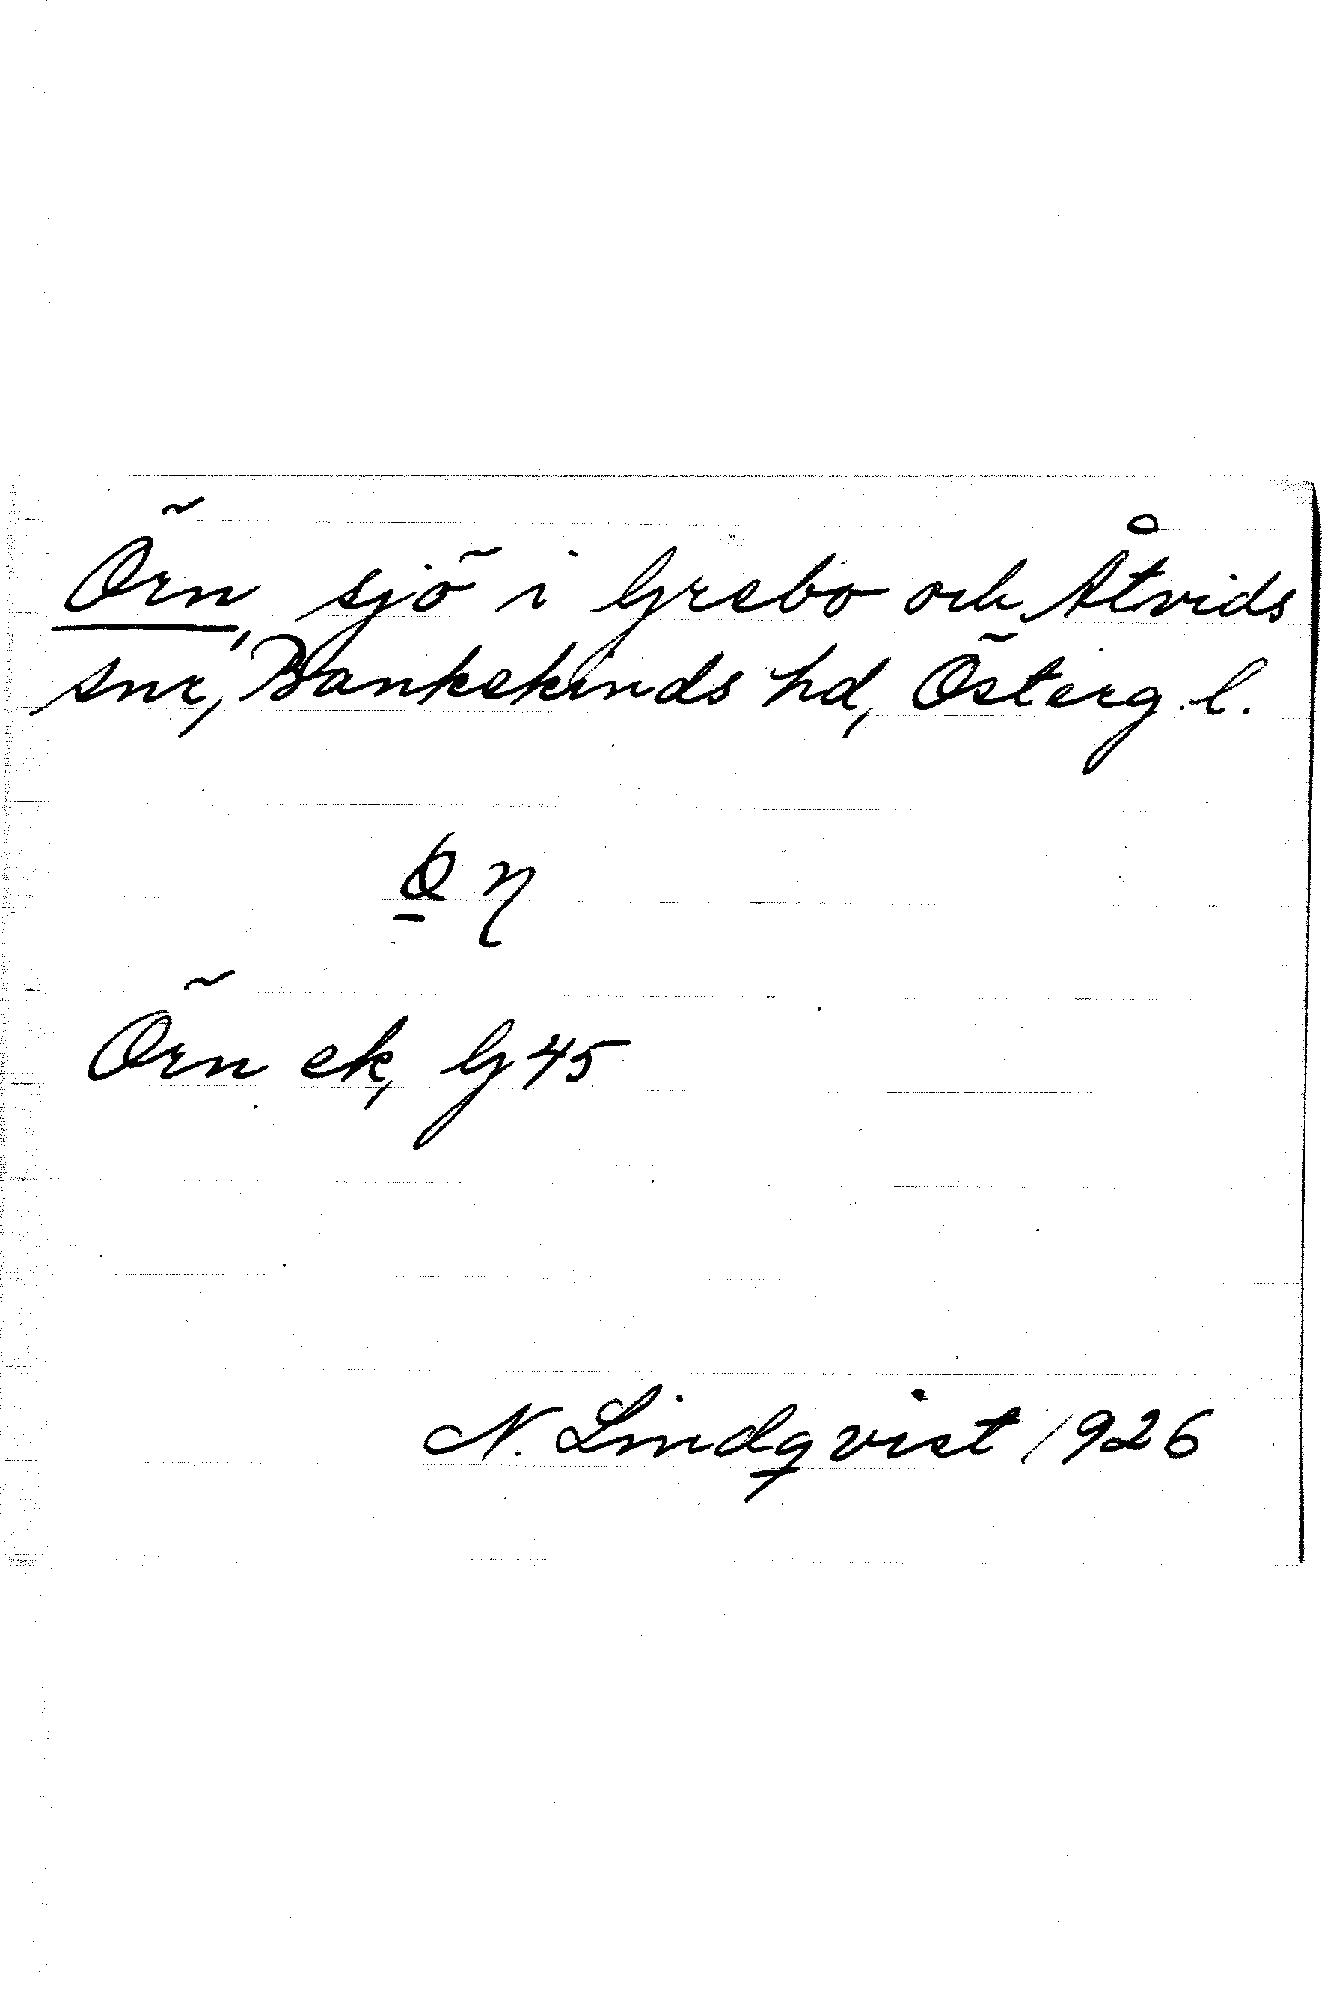 Örn, sjö i Grebo och Åtvids
snr, Bankekinds hd, Österg. l.
Örn ek, G 45
N. Lindqvist 1926